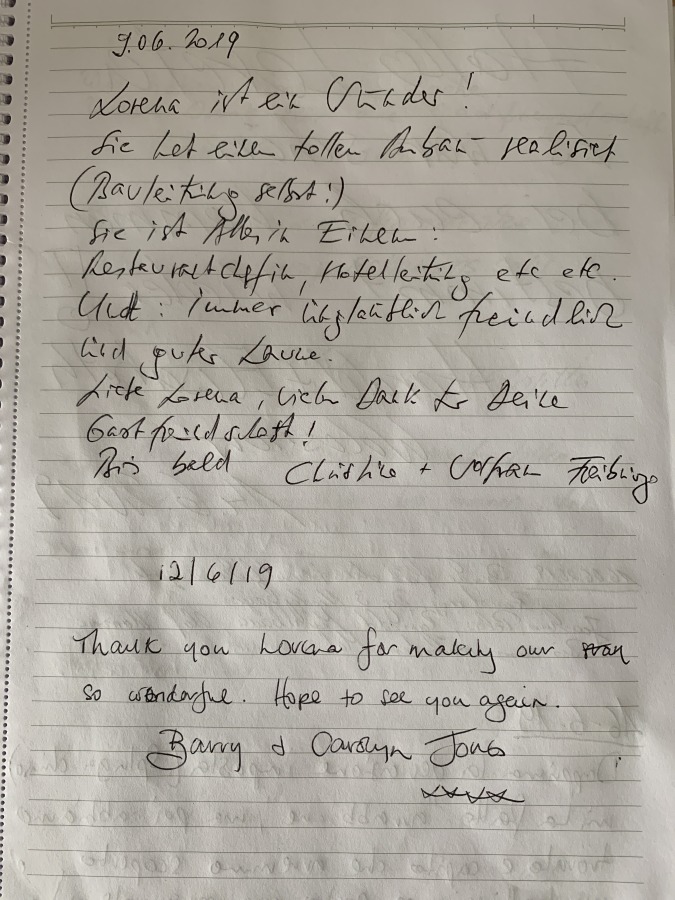 9.06.2019
Lorena ist ein Wunder!
Sie hat einen tollen Anbau realisiert
(Bauleitung selbst!)
Sie ist Alles in Einem:
Restaurantchefin, Hotelleitung etc etc.
Und: immer unglaublich freundlich
und guter Laune.
Liebe Lorena, vielen Dank für Deine
Gastfreundschaft!
Bis bald Christine + Wolfram Freiburg
12/6/19
Thank you Lorena for making our stay
so wonderful. Hope to see you again.
Barry & Carolyn Jones
xxxx